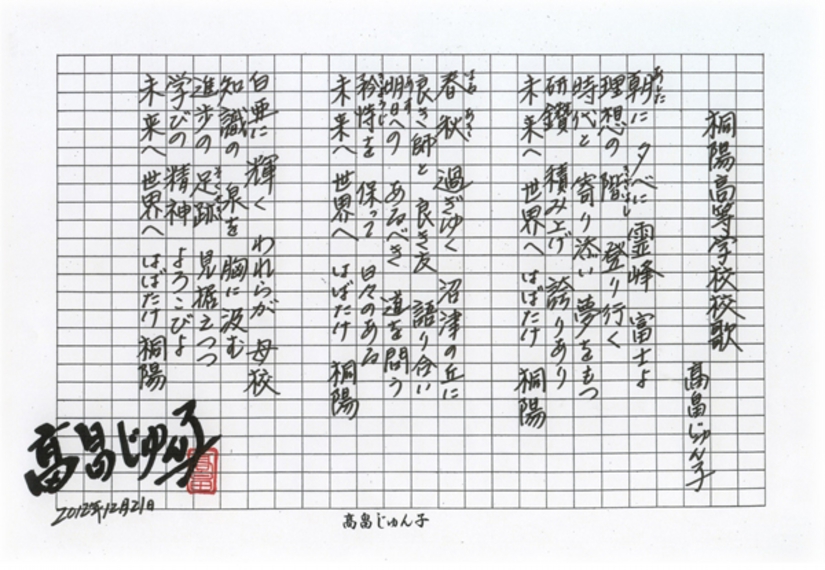 桐陽高等学校校歌
高畠じゅん子
朝に 夕べに 霊峰 富士よ
理想の 階 登り行く
時代と 寄り添い 夢をもつ
研鑽 積み上げ 誇りあり
未来へ 世界へ はばたけ 桐陽
春秋 過ぎゆく 沼津の丘に
良き師と 良き友 語り合い
明日への あるべく 道を問う
矜恃を 保って 日々のある
未来へ 世界へ はばたけ 桐陽
白亜に 輝く われらが 母校
知識の 泉を 胸に汲む
進歩の 足跡 見据えつつ
学びの 精神 よろこびよ
未来へ 世界へ はばたけ 桐陽
高畠じゅん子
2012年12月21日
高畠じゅん子